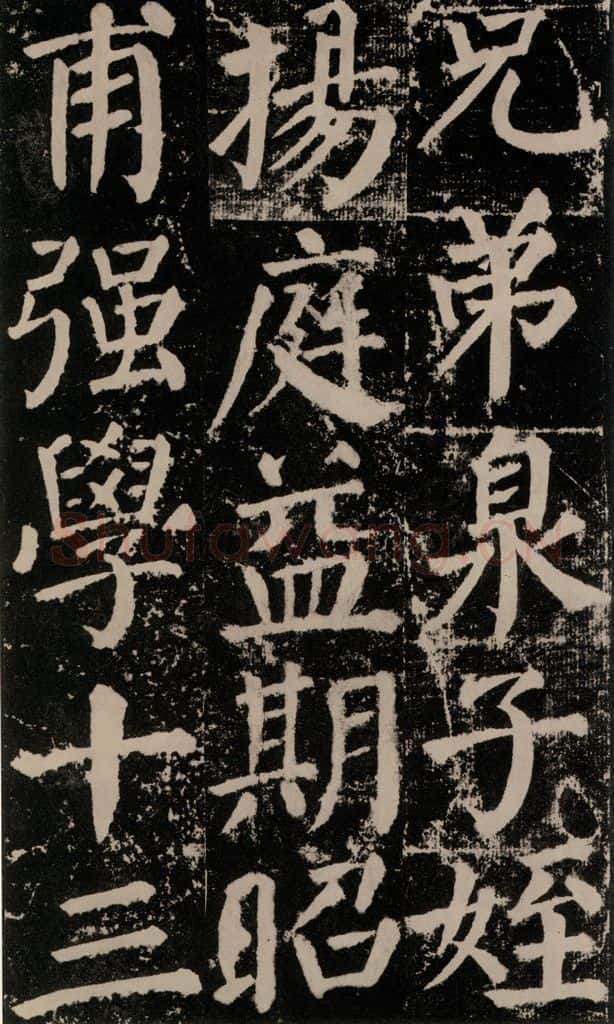 兄弟泉子姪
揚庭益期昭
甫强學十三
Shufawang.CN